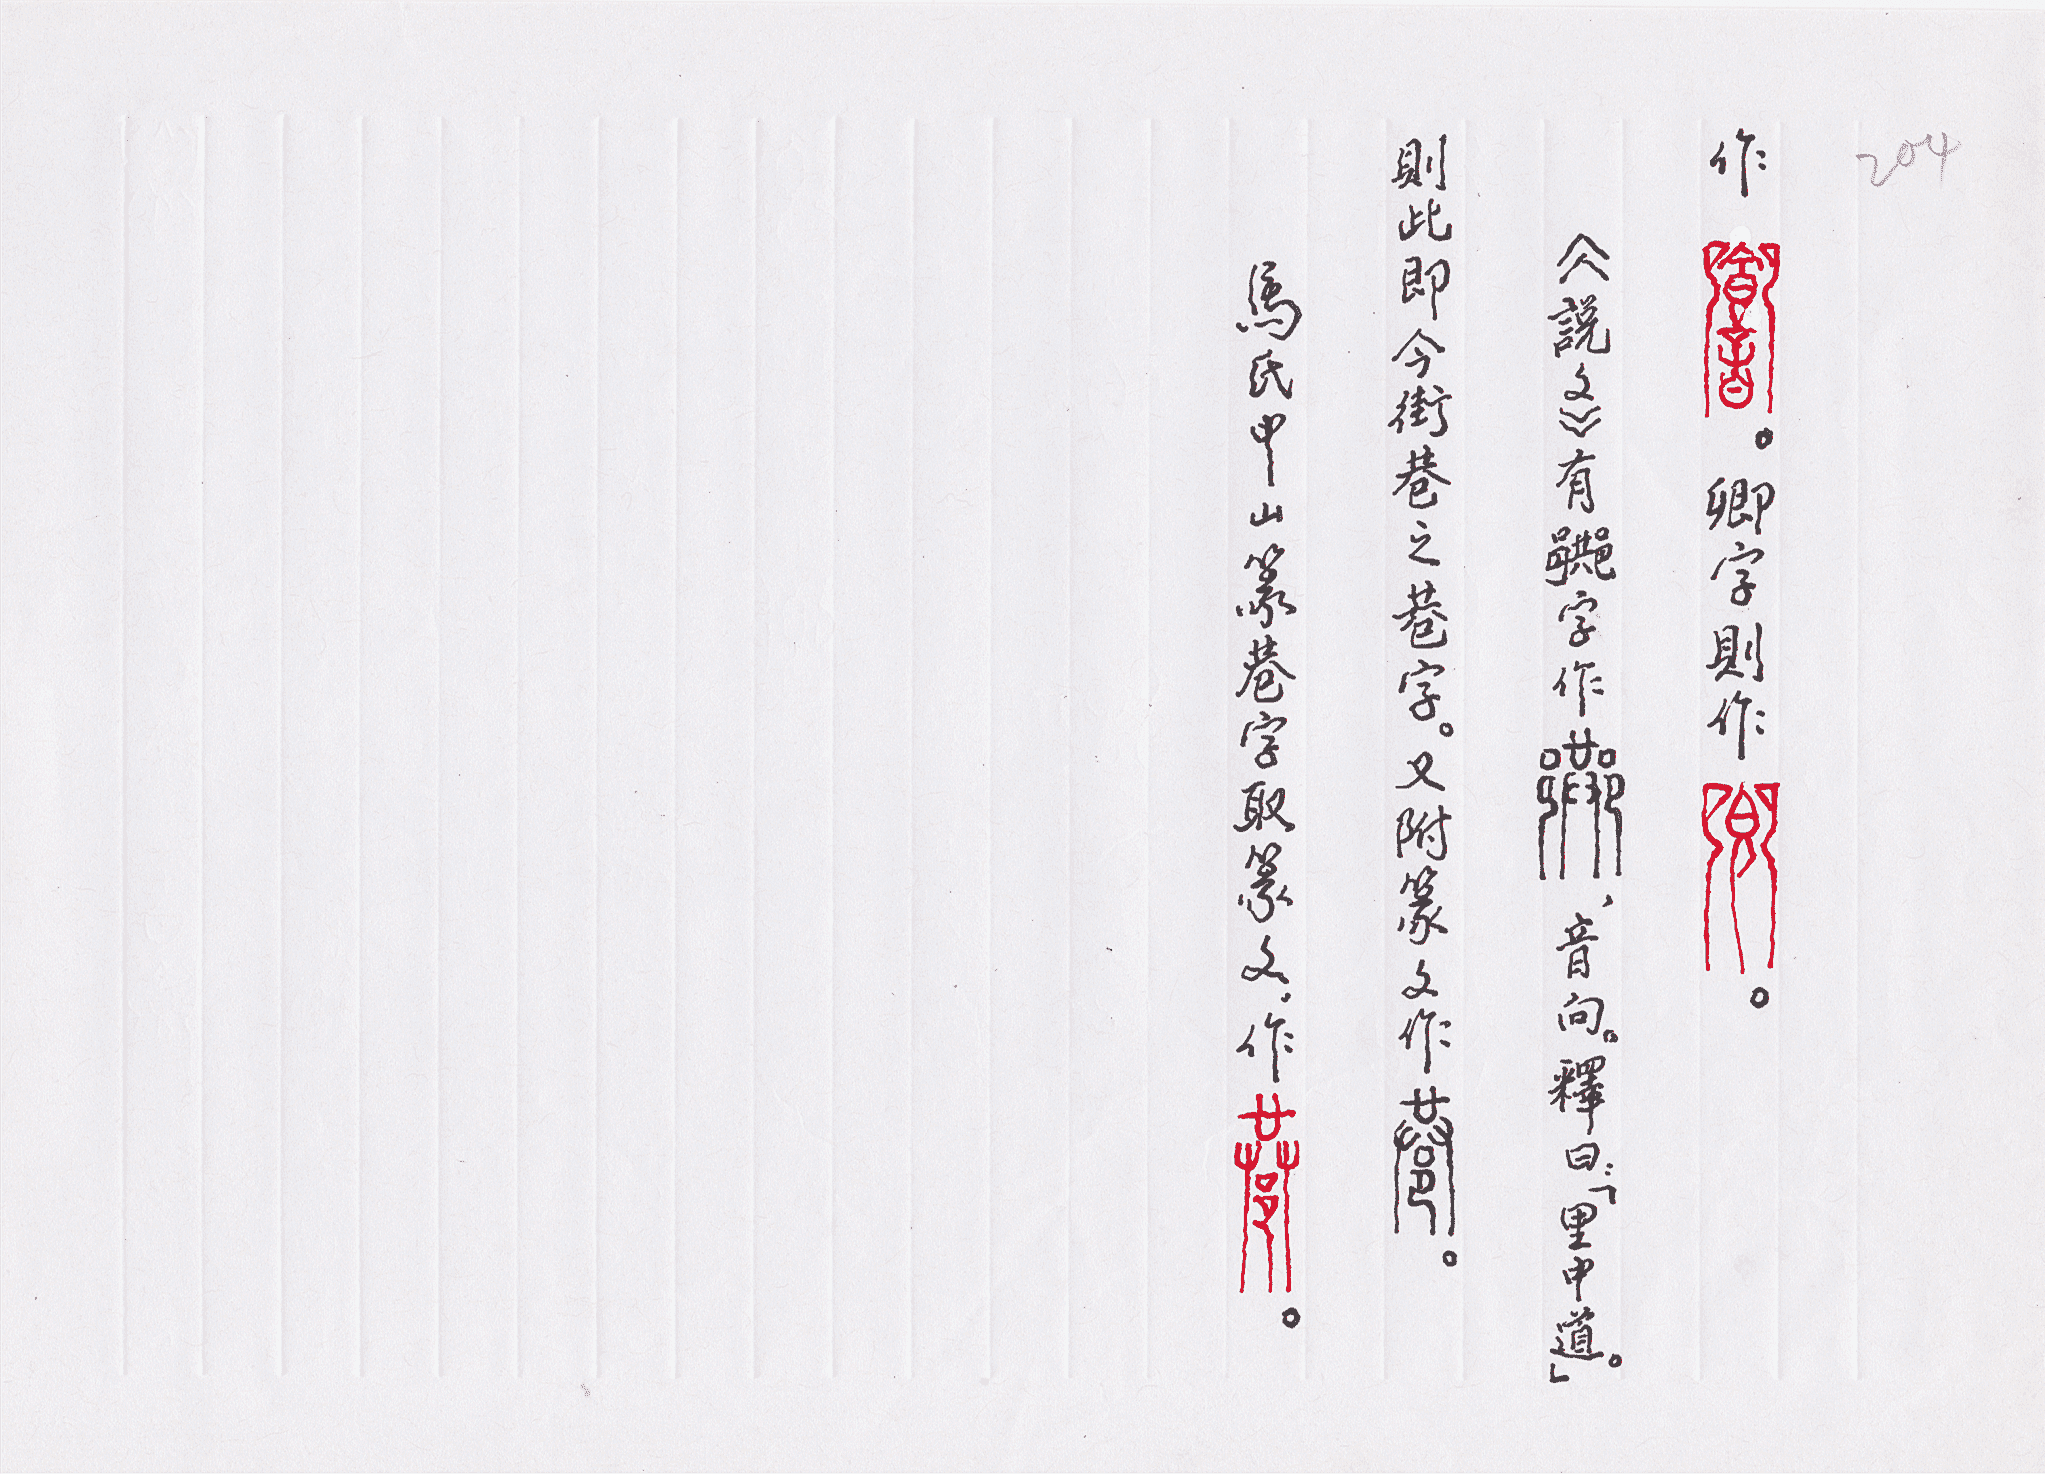 204
作。卿字則作。
《說文》有字作、音向。釋曰:「里中道。」
則此即今街巷之巷字。又附篆文作。
馬氏中山篆巷字取篆文,作。